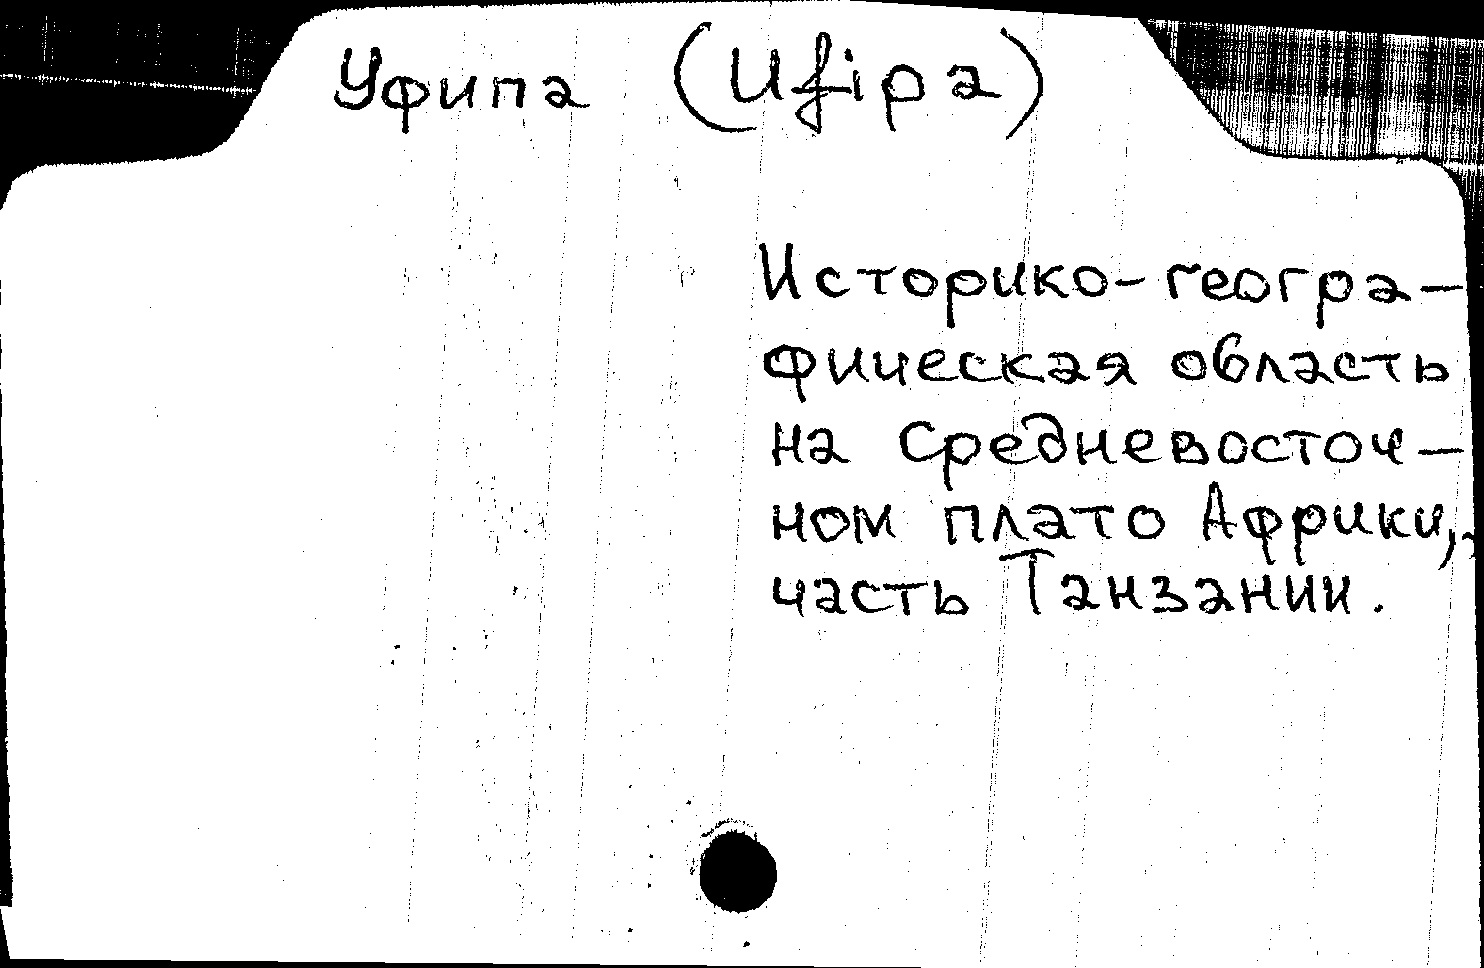 Уфипа (Ufipa)
Историко-геогра-
фическая область
на Средневосточ-
ном плато Африки,
часть Танзании.